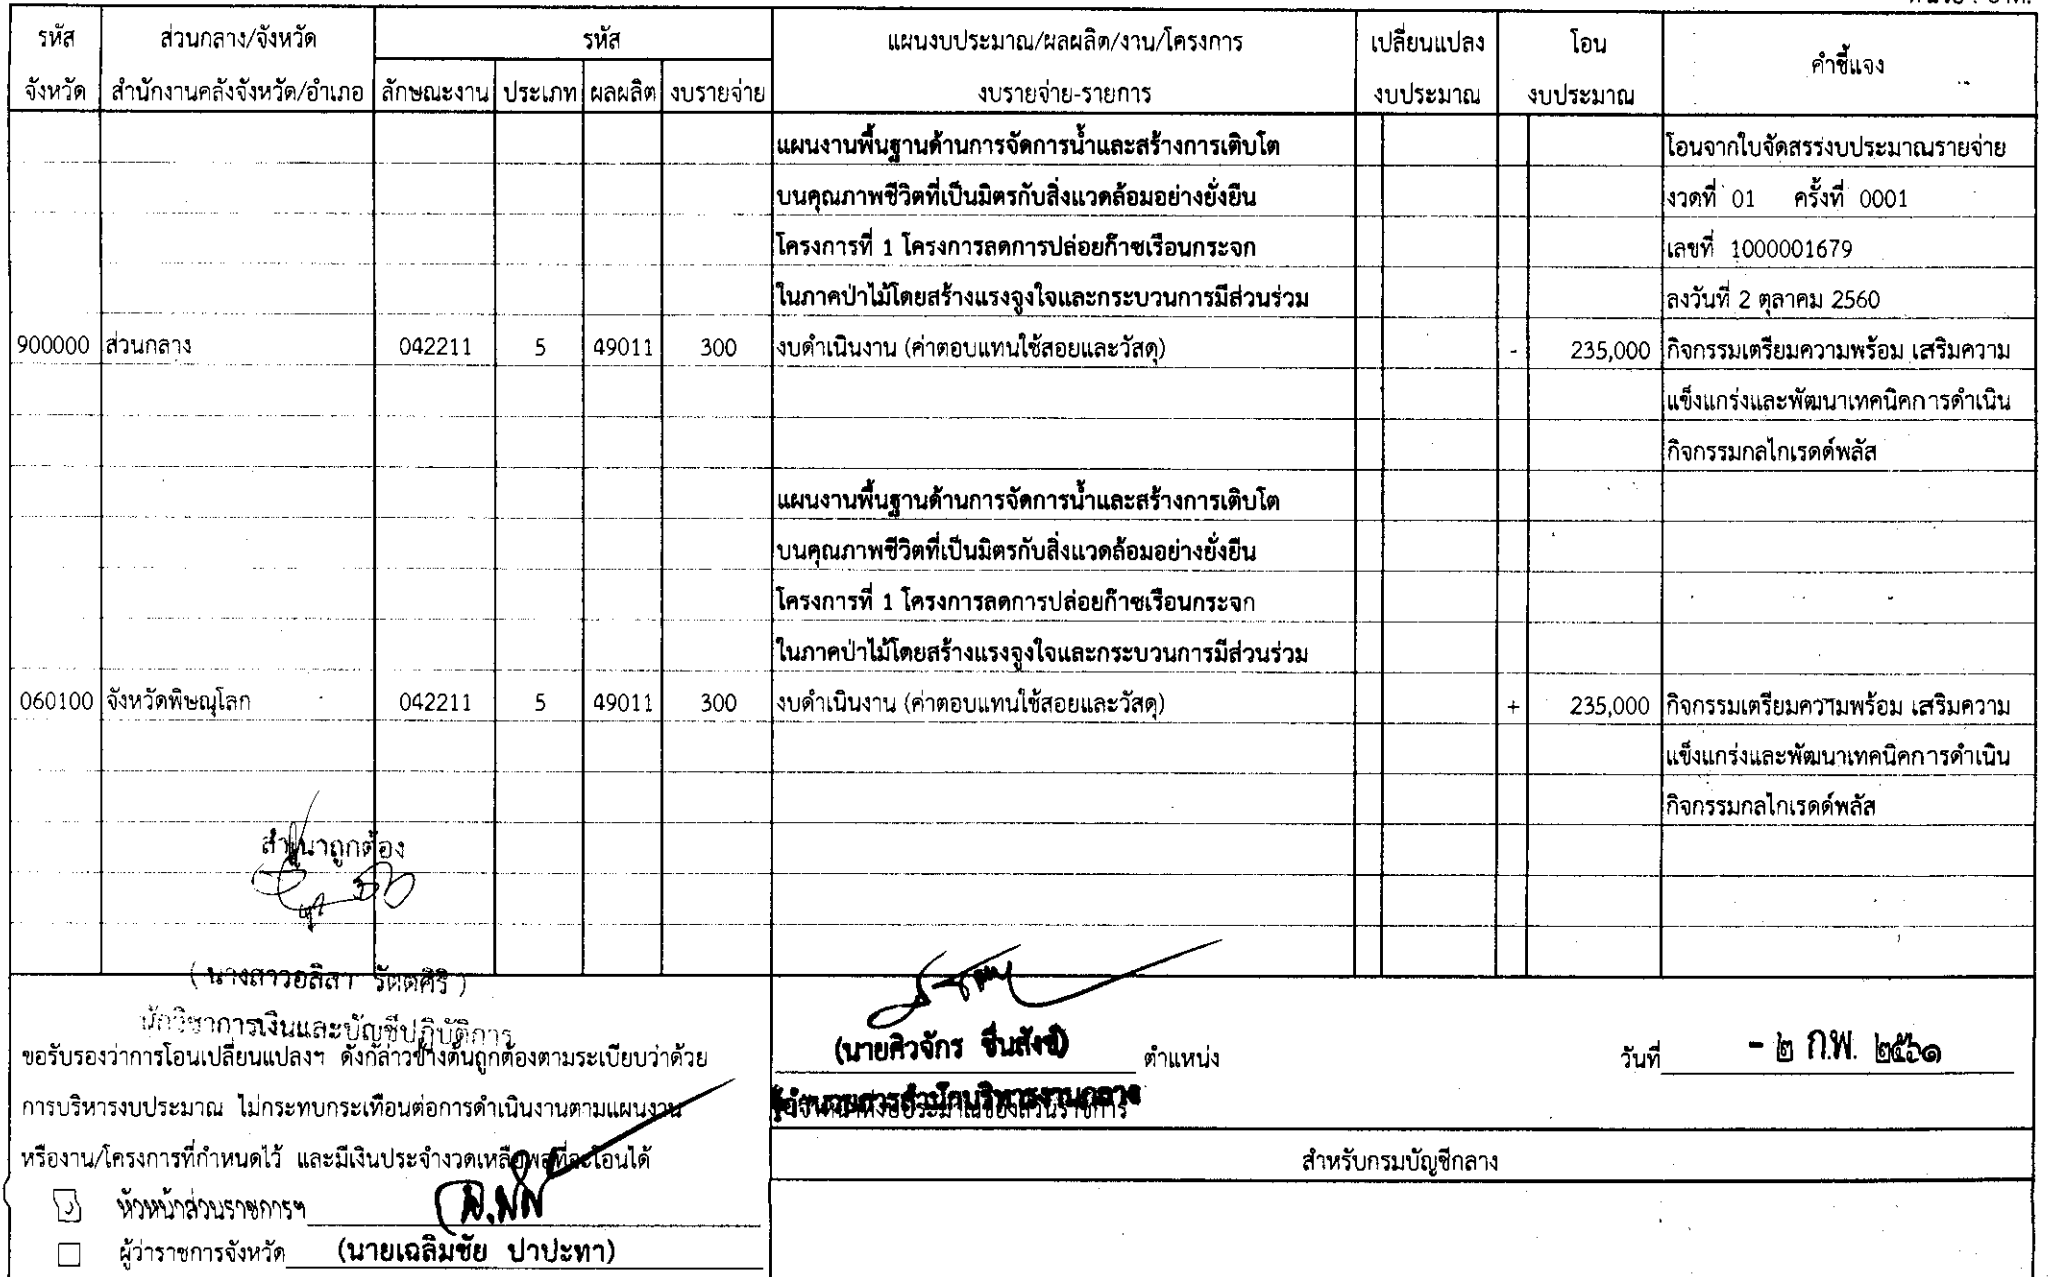 รหัส ส่วนกลาง/จังหวัด รหัส แผนงบประมาณ/ผลผลิต/งาน/โครงการ เปลี่ยนแปลง โอน คำชี้แจง
จังหวัด สำนักงานคลังจังหวัด/อำเภอ ลักษณะงาน ประเภท ผลผลิต งบรายจ่าย งบรายจ่าย-รายการ งบประมาณ งบประมาณ
แผนงานพื้นฐานด้านการจัดการน้ำและสร้างการเติบโต โอนจากใบจัดสรรงบประมาณรายจ่าย
บนคุณภาพชีวิตที่เป็นมิตรกับสิ่งแวดล้อมอย่างยั่งยืน งวดที่ 01 ครั้งที่ 0001
โครงการที่ 1 โครงการลดการปล่อยก๊าซเรือนกระจก เลขที่ 1000001679
ในภาคป่าไม้โดยสร้างแรงจูงใจและกระบวนการมีส่วนร่วม ลงวันที่ 2 ตุลาคม 2560
900000 ส่วนกลาง 042211 5 49011 300 งบดำเนินงาน (ค่าตอบแทนใช้สอยและวัสดุ) - 235,000 กิจกรรมเตรียมความพร้อม เสริมความ
แข็งแกร่งและพัฒนาเทคนิคการดำเนิน
กิจกรรมกลไกเรดด์พลัส
แผนงานพื้นฐานด้านการจัดการน้ำและสร้างการเติบโต
บนคุณภาพชีวิตที่เป็นมิตรกับสิ่งแวดล้อมอย่างยั่งยืน
โครงการที่ 1 โครงการลดการปล่อยก๊าซเรือนกระจก
ในภาคป่าไม้โดยสร้างแรงจูงใจและกระบวนการมีส่วนร่วม
060100 จังหวัดพิษณุโลก 042211 5 49011 300 งบดำเนินงาน (ค่าตอบแทนใช้สอยและวัสดุ) + 235,000 กิจกรรมเตรียมความพร้อม เสริมความ
แข็งแกร่งและพัฒนาเทคนิคการดำเนิน
กิจกรรมกลไกเรดด์พลัส
สำเนาถูกต้อง
(นางสาวอลิสา รัตตศิริ)
นักวิชาการเงินและบัญชีปฏิบัติการ
ขอรับรองว่าการโอนเปลี่ยนแปลงฯ ดังกล่าวข้างต้นถูกต้องตามระเบียบว่าด้วย
การบริหารงบประมาณ ไม่กระทบกระเทือนต่อการดำเนินงานตามแผนงาน
หรืองาน/โครงการที่กำหนดไว้ และมีเงินประจำงวดเหลือพอที่จะโอนได้
หัวหน้าส่วนราชการฯ
ผู้ว่าราชการจังหวัด (นายเฉลิมชัย ปาปะทา)
(นายศิวจักร ชื่นสังข์) ตำแหน่ง วันที่ - ๒ ก.พ. ๒๕๖๑
ผู้อำนวยการสำนักบริหารงานกลาง
สำหรับกรมบัญชีกลาง